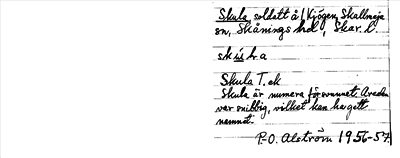 Skula, soldatt å l Kjögen, Skallmeja
sn, Skånings hd, Skar. l.
skula
Skula T. ek
Skula är numera försvunnet. Areden
var snibbig, vilket kan ha gett
namnet.
P-O. Alström 1956-57.